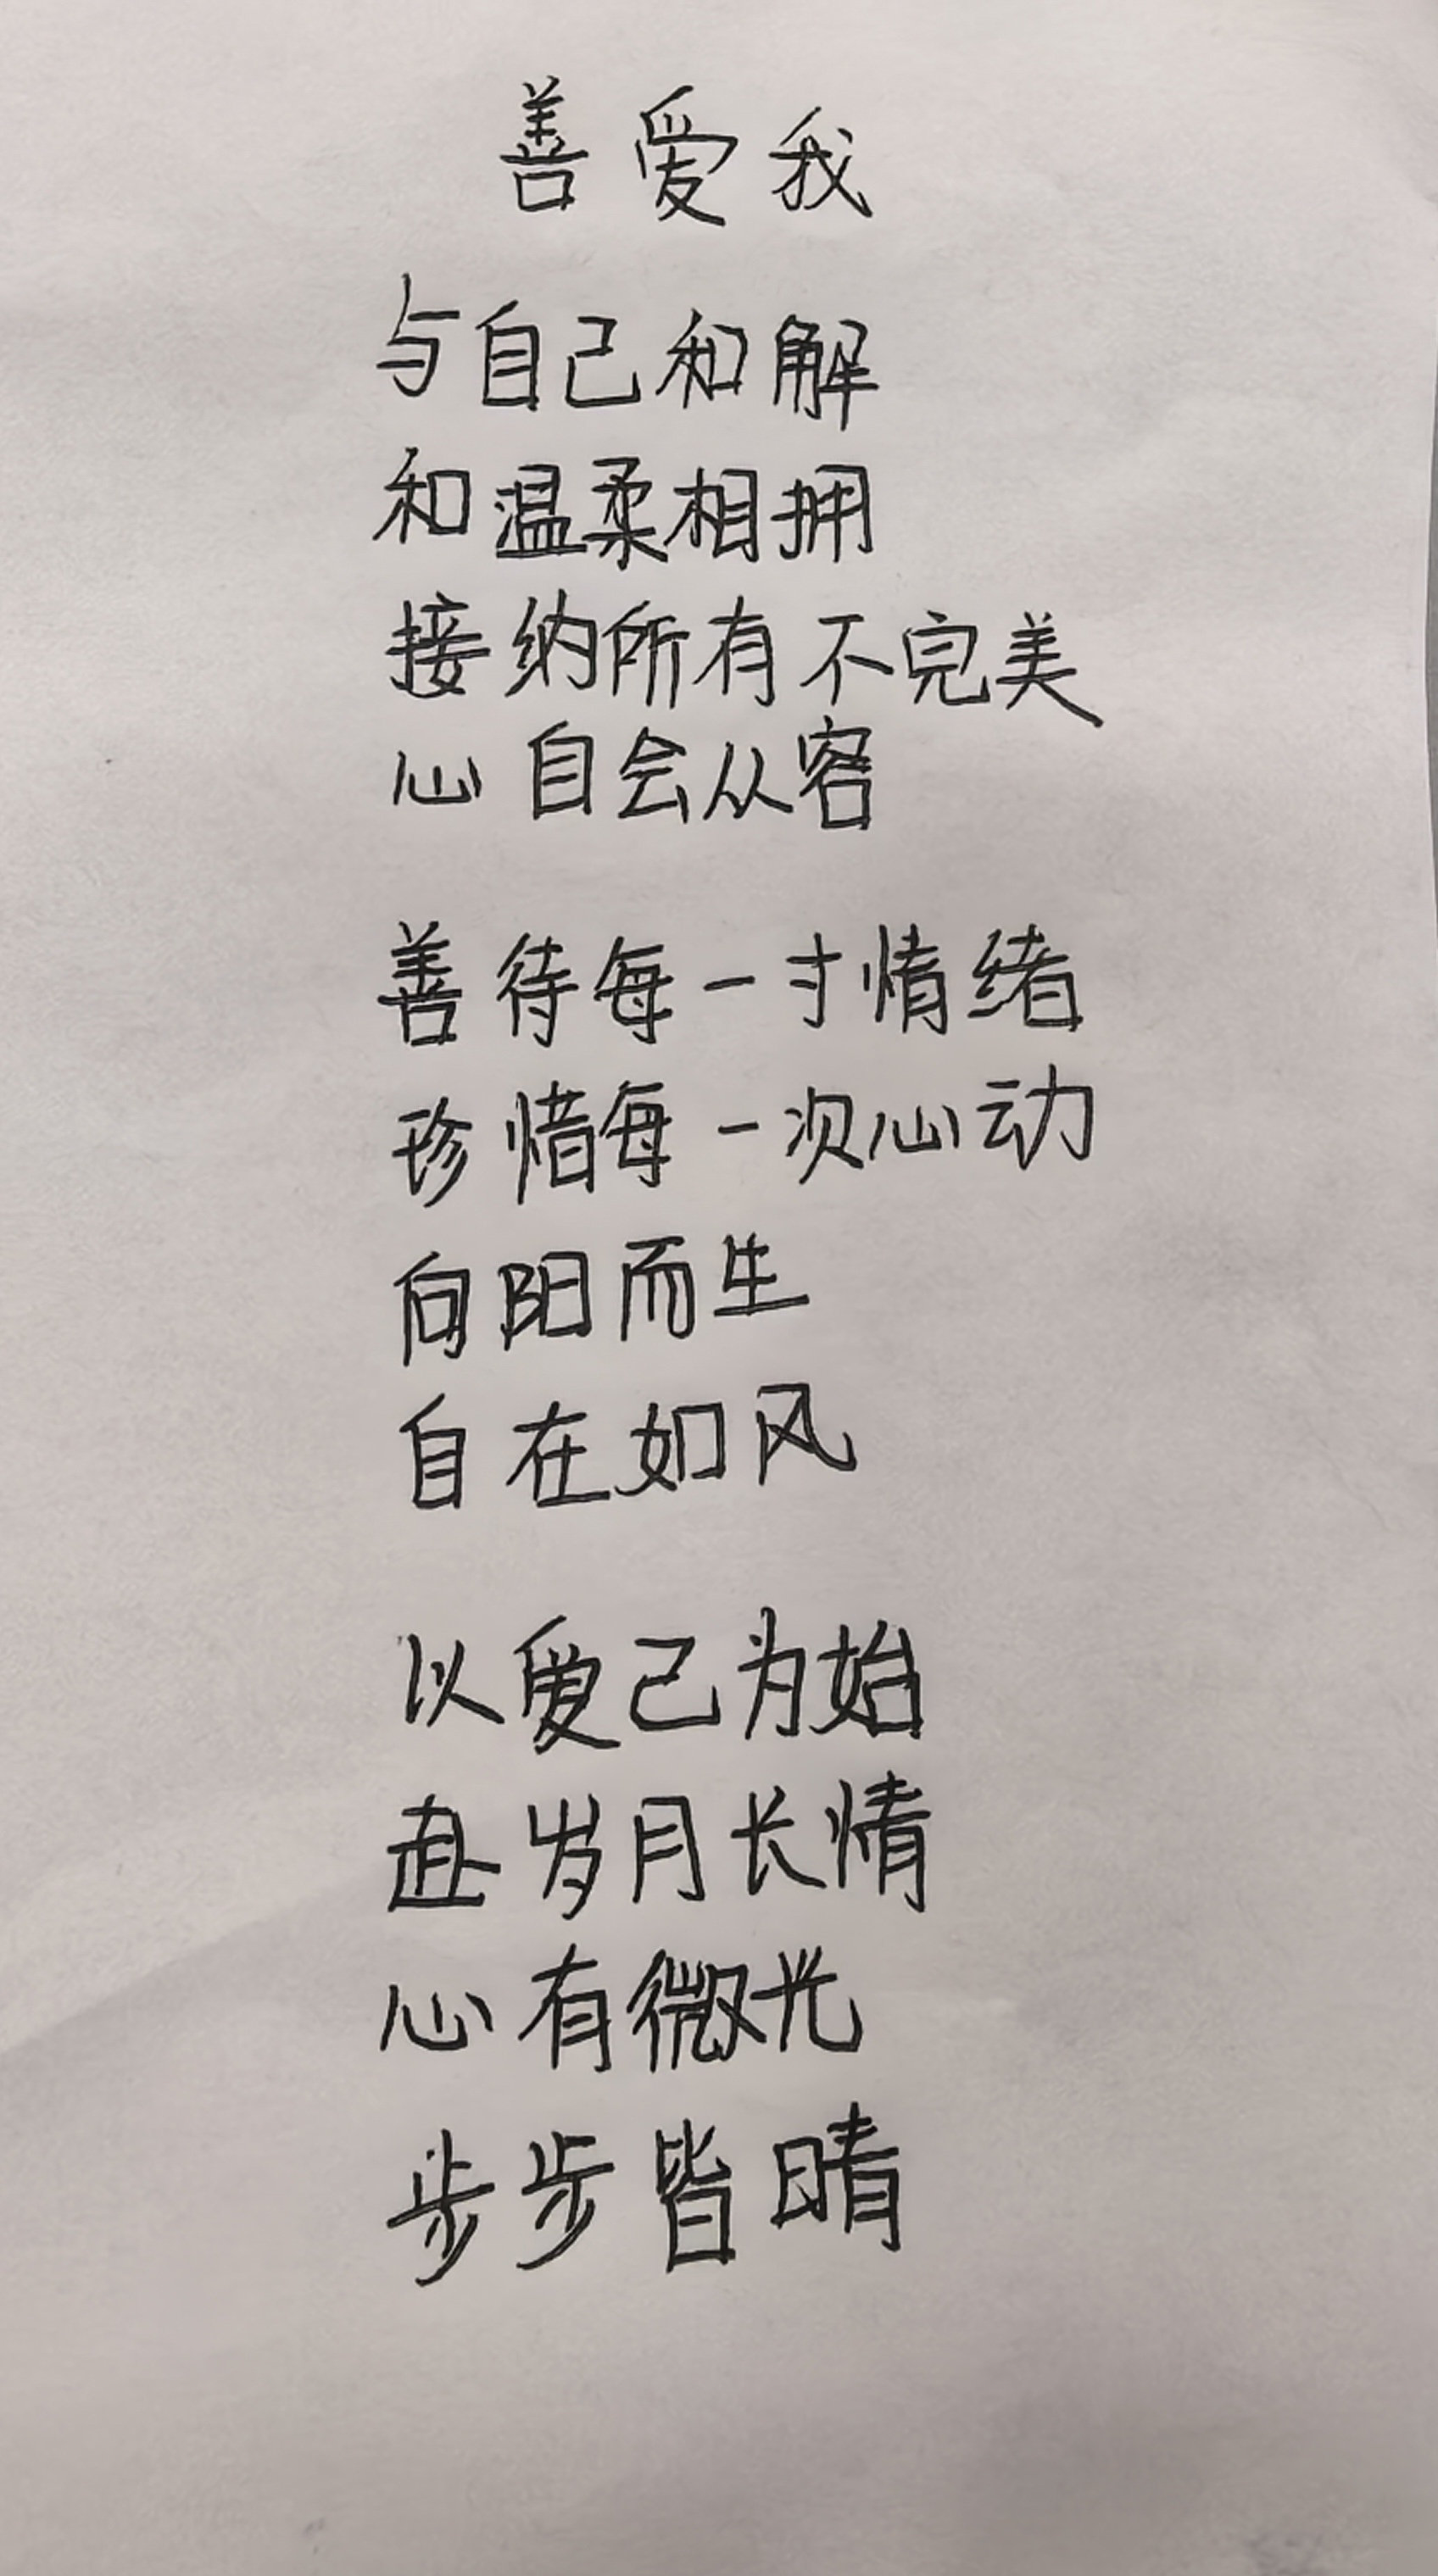 善爱我
与自己和解
和温柔相拥
接纳所有不完美
心自会从容
善待每一寸情绪
珍惜每一次心动
向阳而生
自在如风
以爱己为始
赴岁月长情
心有微光
步步皆晴